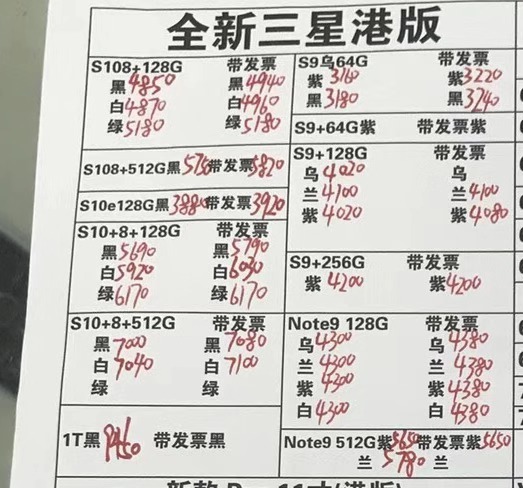 全新三星港版
S108+128G 带发票
黑4850 黑4940
白4870 白4960
绿5180 绿5180
S108+512G黑5750带发票5820
S10e128G黑3880带发票3920
S10+8+128G 带发票
黑5690 黑5790
白5920 白6030
绿6170 绿6170
S10+8+512G 带发票
黑7000 黑7080
白7040 白7100
绿 绿
1T黑 带发票黑
S9乌64G 带发票
紫3160 紫3220
黑3180 黑3240
S9+64G紫 带发票紫
S9+128G 带发票
乌4020 乌
兰4100 兰4100
紫4020 紫4080
S9+256G 带发票
紫4200 紫4200
Note9 128G 带发票
乌4300 乌4380
兰4200 兰4380
紫4200 紫4380
白4300 白4380
Note9 512G紫5650带发票紫5650
兰5780 兰